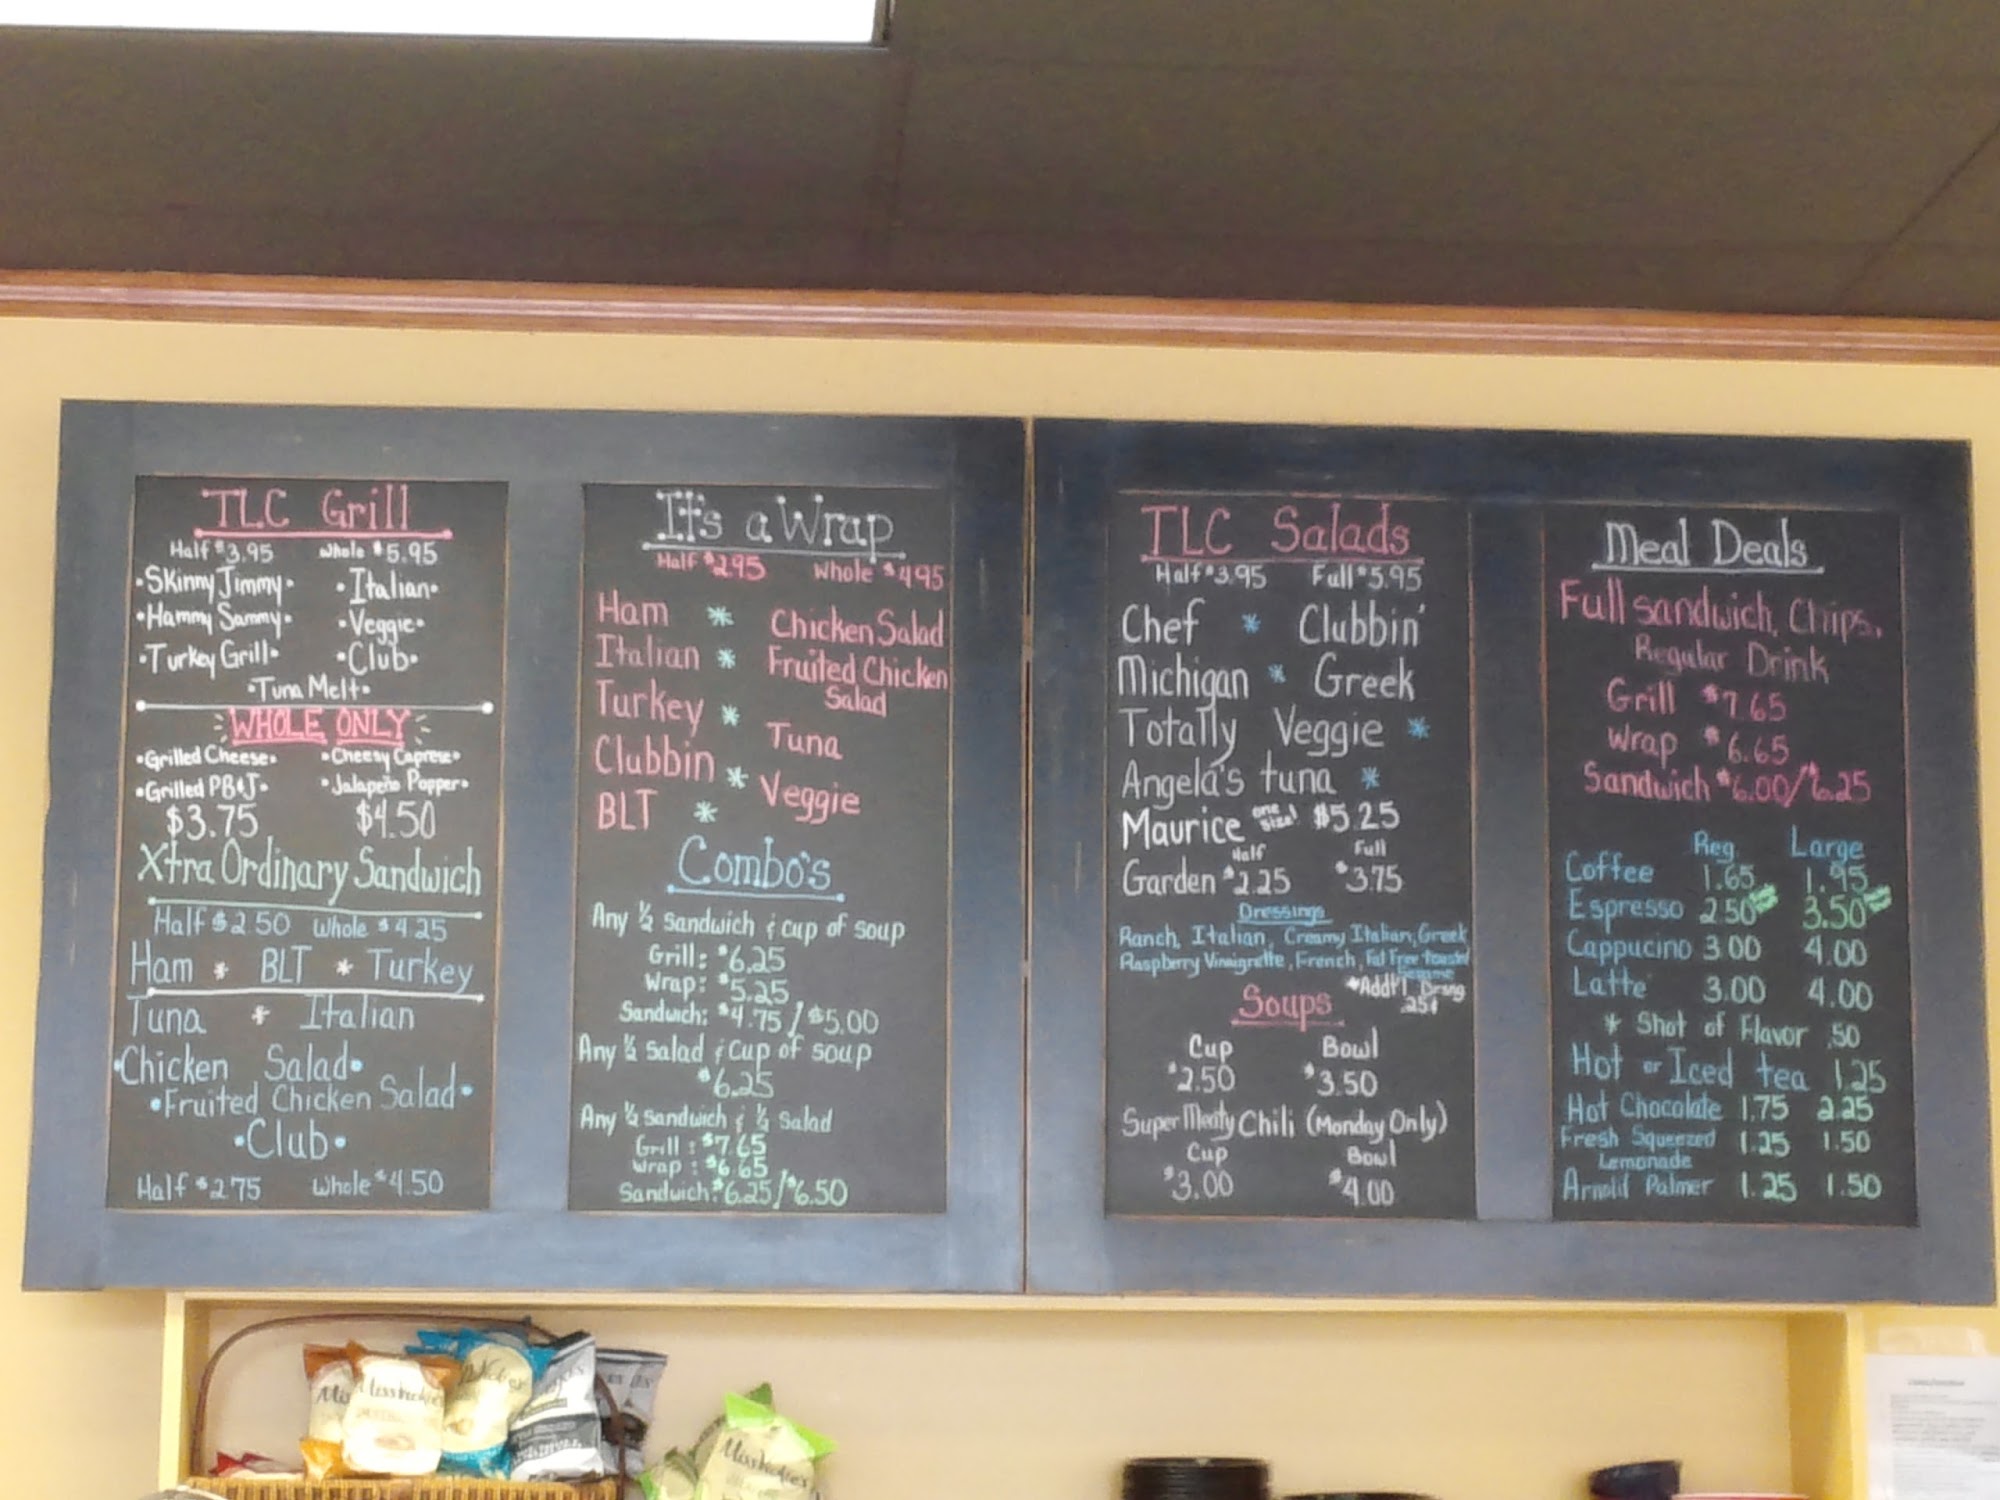 TLC Grill
Half $3.95 Whole $5.95
•Skinny Jimmy• •Italian•
•Hammy Sammy• •Veggie•
•Turkey Grill• •Club•
•Tuna Melt•
WHOLE ONLY
•Grilled Cheese• •Cheesy Caprese•
•Grilled PB&J• •Jalapeño Popper•
$3.75 $4.50
Xtra Ordinary Sandwich
Half $2.50 Whole $4.25
Ham * BLT * Turkey
Tuna * Italian
•Chicken Salad•
•Fruited Chicken Salad•
•Club•
Half $2.75 Whole $4.50
It's a Wrap
Half $2.95 Whole $4.95
Ham * Chicken Salad
Italian * Fruited Chicken
Salad
Turkey * Tuna
Clubbin * Veggie
BLT *
Combo's
Any ½ Sandwich & cup of soup
Grill: $6.25
Wrap: $5.25
Sandwich: $4.75/$5.00
Any ½ Salad & Cup of soup
$6.25
Any ½ Sandwich & ½ Salad
Grill: $7.65
Wrap: $6.65
Sandwich: $6.25/$6.50
TLC Salads
Half $3.95 Full $5.95
Chef * Clubbin'
Michigan * Greek
Totally Veggie *
Angela's tuna *
Maurice one size! $5.25
Half Full
Garden $2.25 $3.75
Dressings
Ranch, Italian, Creamy Italian, Greek
Raspberry Vinaigrette, French, Fat Free toasted
Sesame
*Addt'l Drsng
.25¢
Soups
Cup Bowl
$2.50 $3.50
Super Meaty Chili (Monday Only)
Cup Bowl
$3.00 $4.00
Meal Deals
Full sandwich, Chips,
Regular Drink
Grill $7.65
Wrap $6.65
Sandwich $6.00/$6.25
Reg Large
Coffee 1.65 1.95
Espresso 2.50 3.50
Cappucino 3.00 4.00
Latte 3.00 4.00
* Shot of Flavor .50
Hot or Iced tea 1.25
Hot Chocolate 1.75 2.25
Fresh Squeezed 1.25 1.50
Lemonade
Arnold Palmer 1.25 1.50
Missvickie's